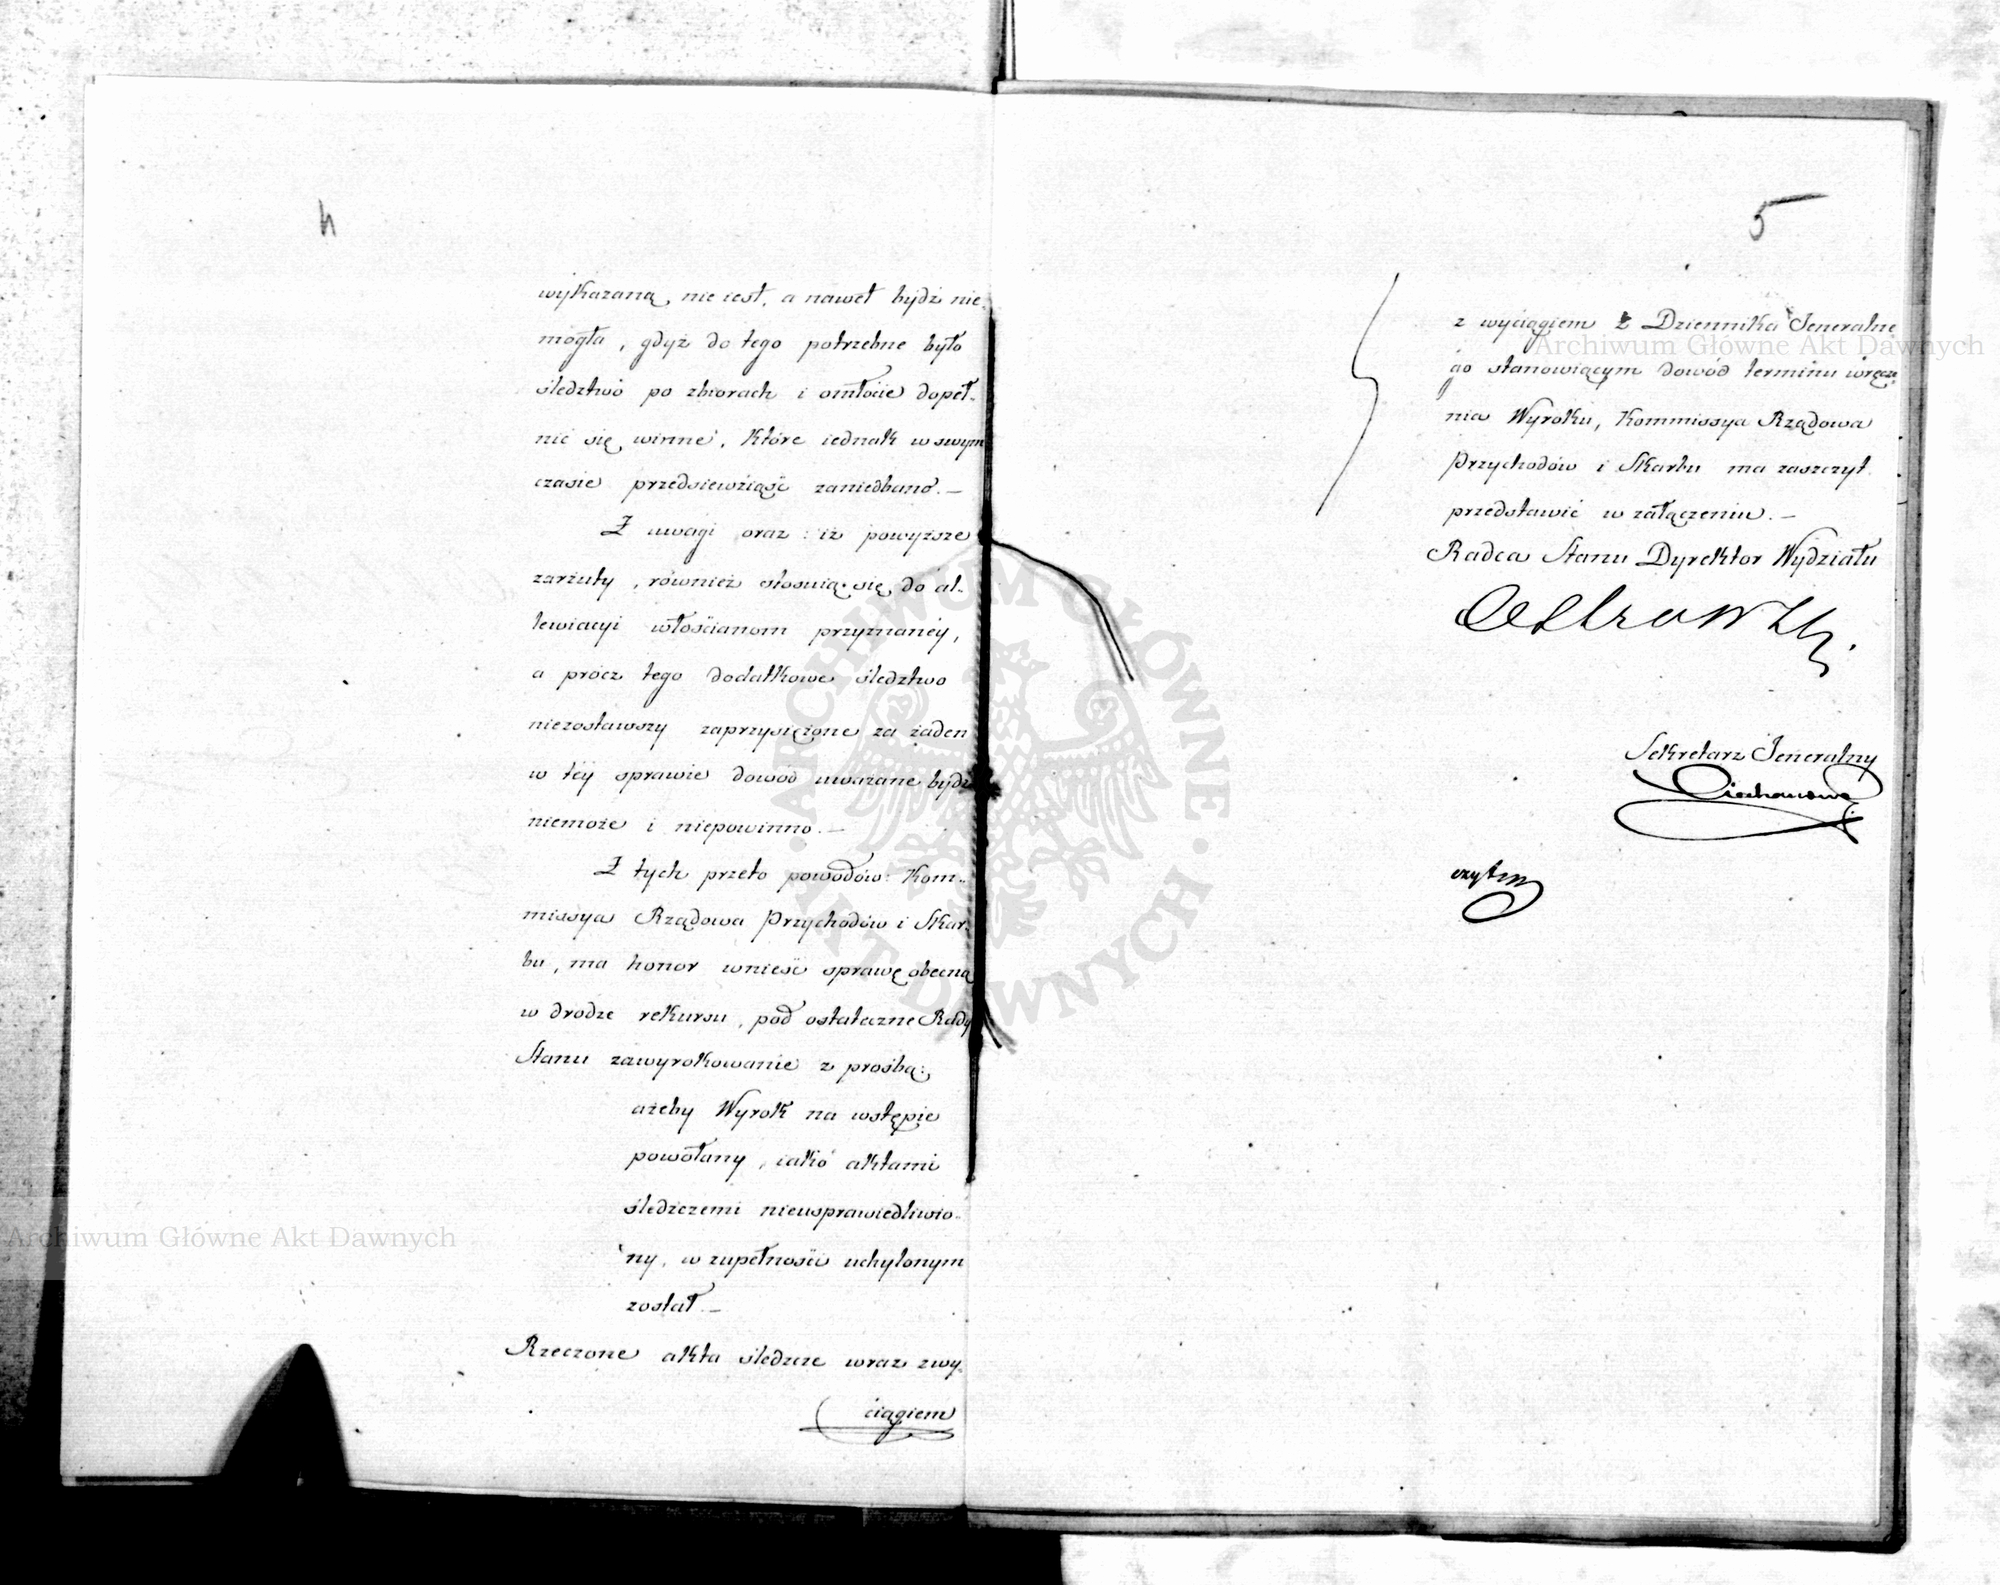 4
wykazaną nie iest, a nawet bydź nie-
mogła, gdyż do tego potrzebne było
śledztwo po zbiorach i omłocie dopeł-
nić się winne, które iednak w swym
czasie przedsiewziąść zaniedbano. —
Z uwagi oraz: iż powyższe
zarzuty, również stosuią się do al-
lewiacyi włościanom przyznaney,
a prócz tego dodatkowe śledztwo
niezostawszy zaprzysiężone za żaden
w téy sprawie dowód uważane bydź
niemoże i niepowinno. —
Z tych przeto powodów: Kom-
missya Rządowa Przychodów i Skar-
bu, ma honor wnieść sprawę obecną
w drodze rekursu, pod ostateczne Rady
Stanu zawyrokowanie z prośbą:
ażeby Wyrok na wstępie
powołany, iako aktami
śledczemi nieusprawiedliwio-
ny, w zupełności uchylonym
został. —
Rzeczone akta śledcze wraz z wy-
ciągiem
5
z wyciągiem z Dziennika Jeneralne
go stanowiącym dowód terminu wręcze-
nia Wyroku, Kommissya Rządowa
Przychodów i Skarbu ma zaszczyt
przedstawić w załączeniu. —
Radca Stanu Dyrektor Wydziału
Sekretarz Jeneralny
Archiwum Główne Akt Dawnych
Archiwum Główne Akt Dawnych
ARCHIWUM GŁÓWNE · AKT DAWNYCH ·